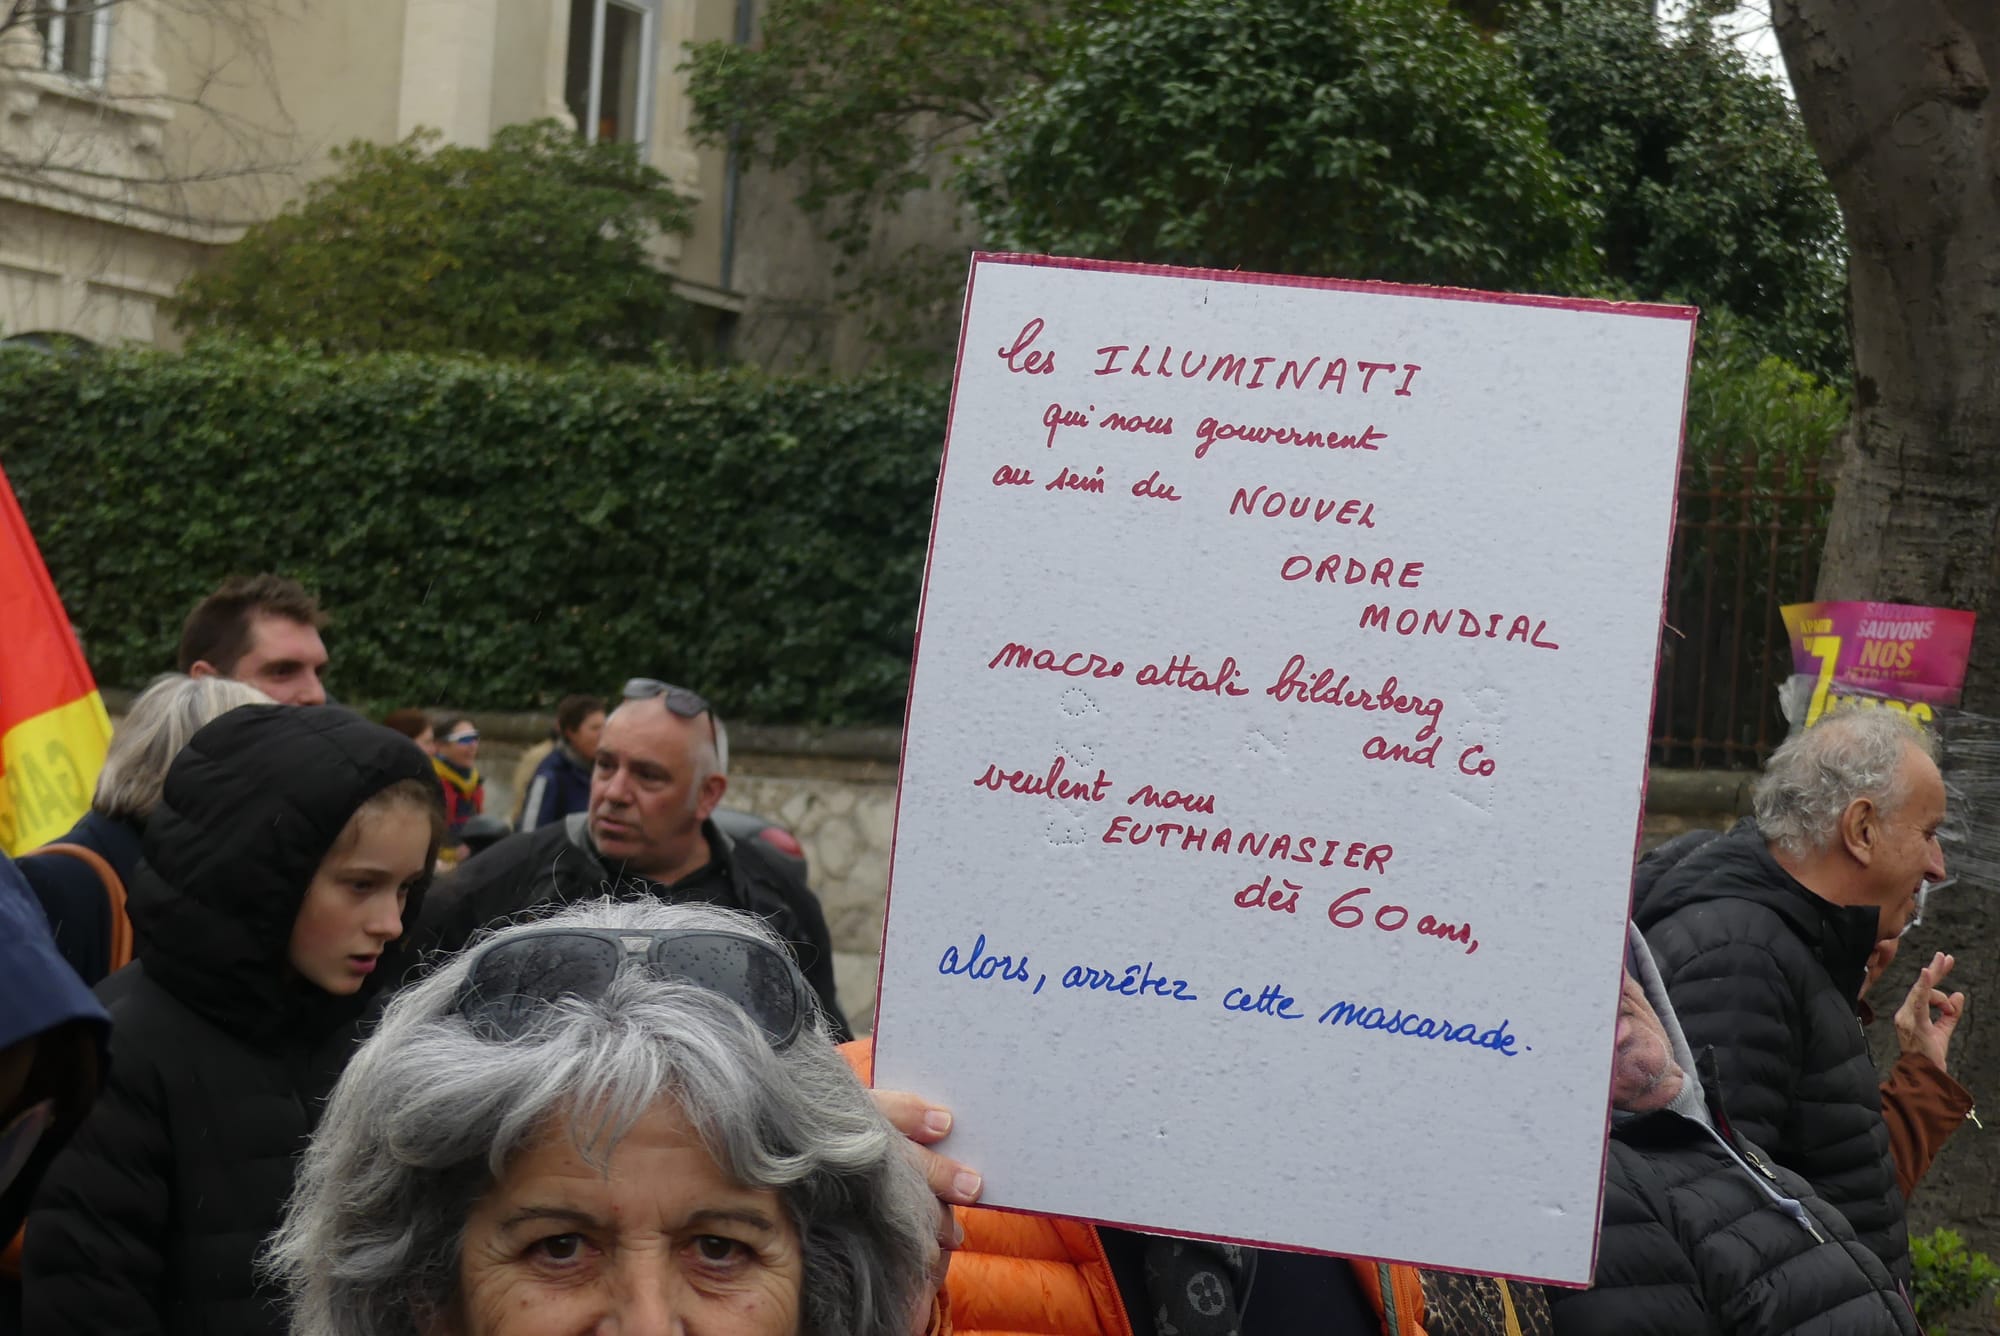 les ILLUMINATI
qui nous gouvernent
au sein du NOUVEL
ORDRE
MONDIAL
macro attali bilderberg
and Co
veulent nous
EUTHANASIER
dès 60 ans,
alors, arrêtez cette mascarade.
A PARTIR
DU
7
MARS
SAUVONS
NOS
RETRAITES
GAR